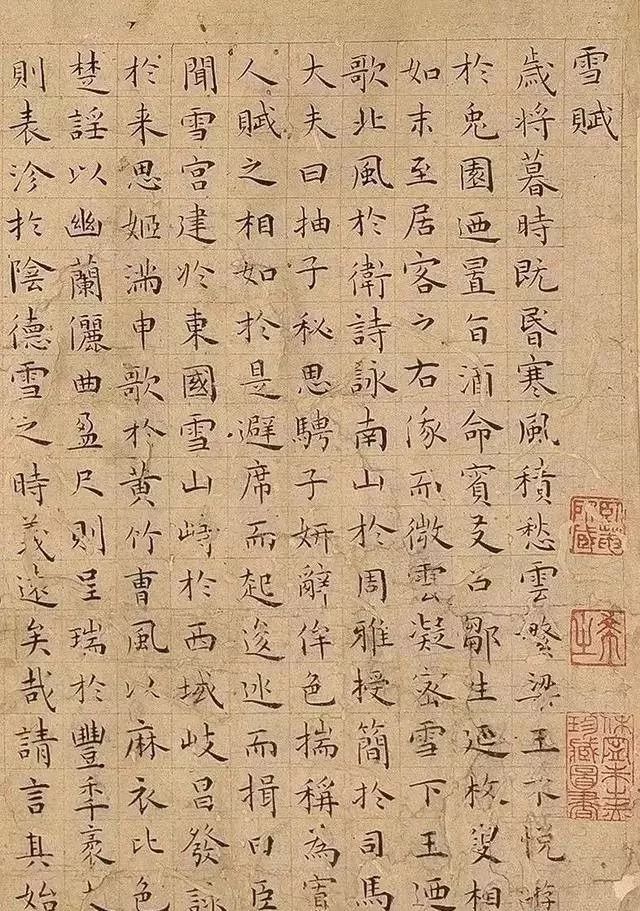 雪賦
歲將暮時既昬寒風積愁雲繁梁王不悅游
於兔園迺置旨酒命賓友召鄒生延枚叟相
如末至居客之右俄而微雲凝密雪下王迺
歌北風於衛詩詠南山於周雅授簡於司馬
大夫曰抽子秘思騁子妍辭侔色揣稱為寡
人賦之相如於是避席而起逡巡而揖曰臣
聞雪宮建於東國雪山峙於西域岐昌發詠
於来思姬滿申歌於黄竹曹風以麻衣比色
楚謡以幽蘭儷曲盈尺則呈瑞於豐年袤丈
則表沴於陰德雪之時義遠矣哉請言其始
休寧朱之赤
珍藏圖書